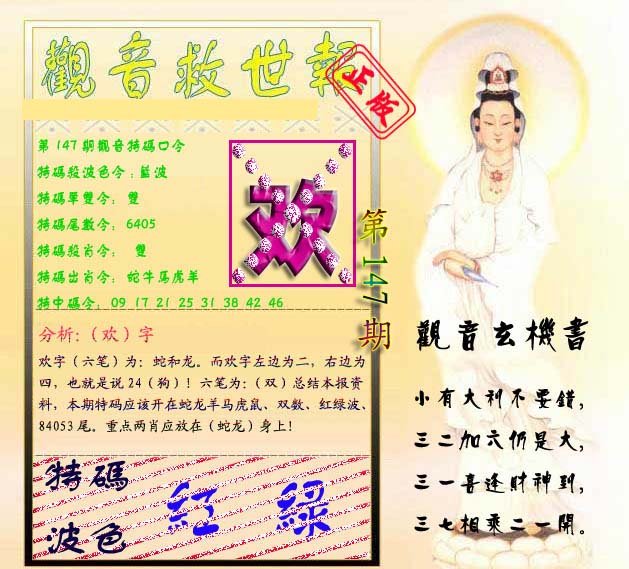 觀音救世報
正版
第147期觀音特碼口令
特碼殺波色令：藍波
特碼單雙令： 雙
特碼尾數令：6405
特碼殺肖令： 雙
特碼出肖令：蛇牛馬虎羊
特中碼令：09 17 21 25 31 38 42 46
欢
第147期
分析:（欢）字
欢字（六笔）为：蛇和龙。而欢字左边为二，右边为
四，也就是说24（狗）！六笔为:（双）总结本报资
料，本期特码应该开在蛇龙羊马虎鼠、双数、红绿波、
84053尾。重点两肖应放在（蛇龙）身上！
特碼
波色
紅 綠
觀音玄機書
小有大利不要錯，
三二加六仍是大，
三一喜逢財神到，
三七相乘二一開。